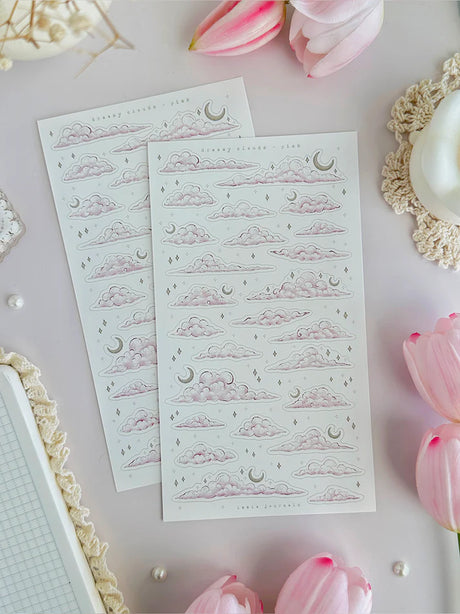 dreamy clouds - pink
dreamy clouds - pink